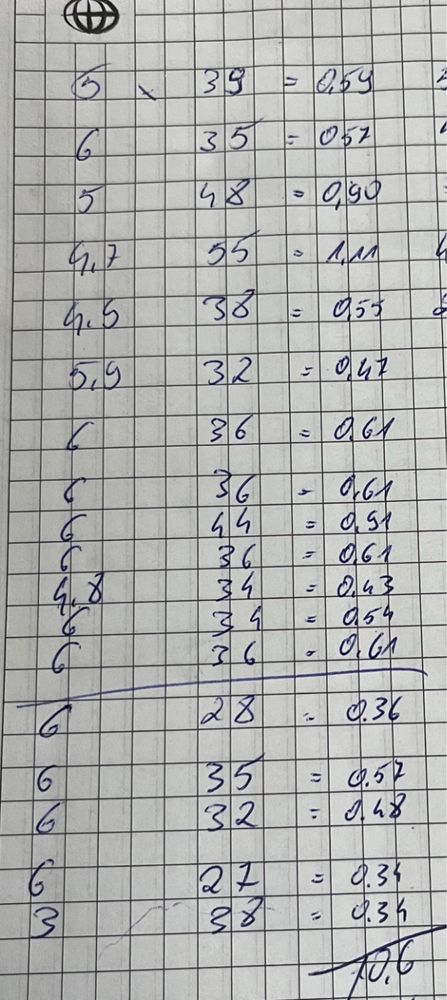 5 x 39 = 0,59
6 35 = 0,57
5 48 = 0,90
4,7 55 = 1,11
4.5 38 = 0,55
5,9 32 = 0,47
6 36 = 0,61
6 36 = 0,61
6 44 = 0,91
6 36 = 0,61
4,8 34 = 0,43
6 34 = 0,54
6 36 = 0,61
6 28 = 0.36
6 35 = 0.57
6 32 = 0.48
6 27 = 0.34
3 38 = 0.34
10,6